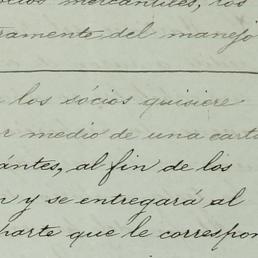 mercantiles, los
ramente del manejo
los sócios quisiere
r medio de una carta
antes, al fin de los
n y se entregará al
parte que le correspon